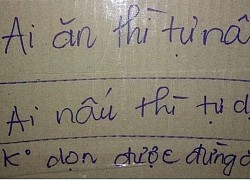 Ai ăn thì tự nấ
Ai nấu thì tự d
K° dọn được đừng